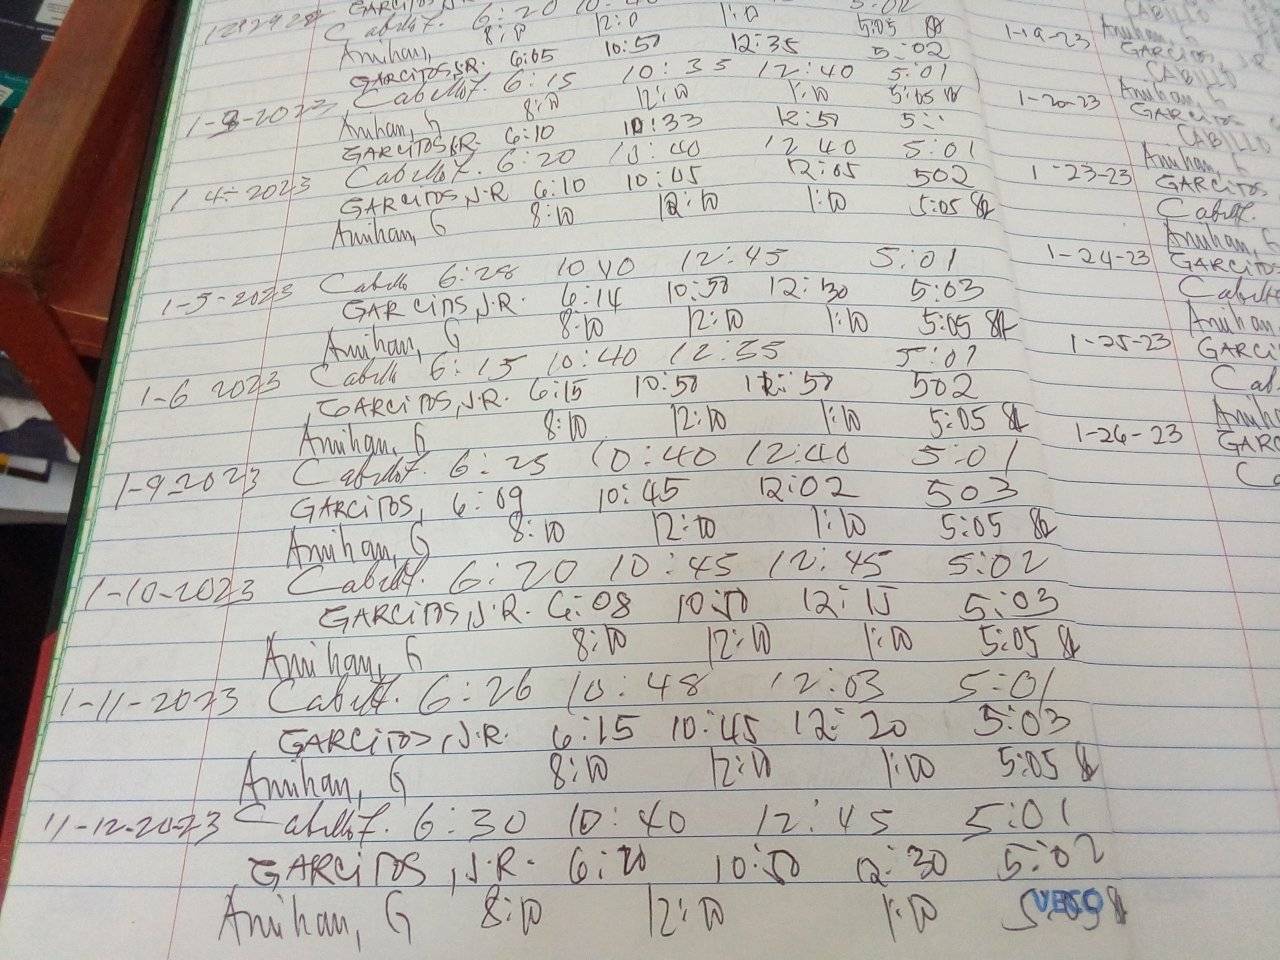 GARCITOS
Cabillo F. 6:20
Anihan, 8:10 12:10 1:10 5:05
GARCITOS J.R. 6:05 10:50 12:35 5:02
1-3-2023 Cabillo F. 6:15 10:35 12:40 5:01
Anihan, G 8:10 12:10 1:10 5:05
GARCITOS J.R. 6:10 10:33 12:50
1 4-2023 Cabillo F. 6:20 10:40 12 40 5:01
GARCITOS, J.R 6:10 10:05 12:05 502
Anihan, G 8:10 12:10 1:10 5:05
1-5-2023 Cabillo 6:28 10 40 12:45 5:01
GARCITOS, J.R. 6:14 10:50 12:30 5:03
Anihan, G 8:10 12:10 1:10 5:05
1-6 2023 Cabillo 6:15 10:40 12:35 5:01
GARCITOS, J.R. 6:15 10:50 12:50 502
Anihan, G 8:10 12:10 1:10 5:05
1-9-2023 Cabillo F. 6:25 10:40 12:40 5:01
GARCITOS, 6:09 10:45 12:02 503
Anihan, G 8:10 12:10 1:10 5:05
1-10-2023 Cabillo F. 6:20 10:45 12:45 5:02
GARCITOS, J.R. 6:08 10:50 12:15 5:03
Anihan, G 8:10 12:10 1:10 5:05
1-11-2023 Cabillo F. 6:26 10:48 12:03 5:01
GARCITOS, J.R. 6:15 10:45 12:20 5:03
Anihan, G 8:10 12:10 1:10 5:05
1-12-2023 Cabillo F. 6:30 10:40 12:45 5:01
GARCITOS, J.R. 6:20 10:50 12:30 5:02
Anihan, G 8:10 12:10 1:10 5:05
VECO
CABILLO
1-19-23 Anihan, G
GARCITOS J R
CABILLO
1-20-23 Anihan, G
GARCITOS
CABILLO
Anihan, G
1-23-23 GARCITOS
Cabillo F.
Anihan, G
1-24-23 GARCITOS
Cabillo
Anihan
1-25-23 GARCI
Cab
Anih
1-26-23 GARC
Ca